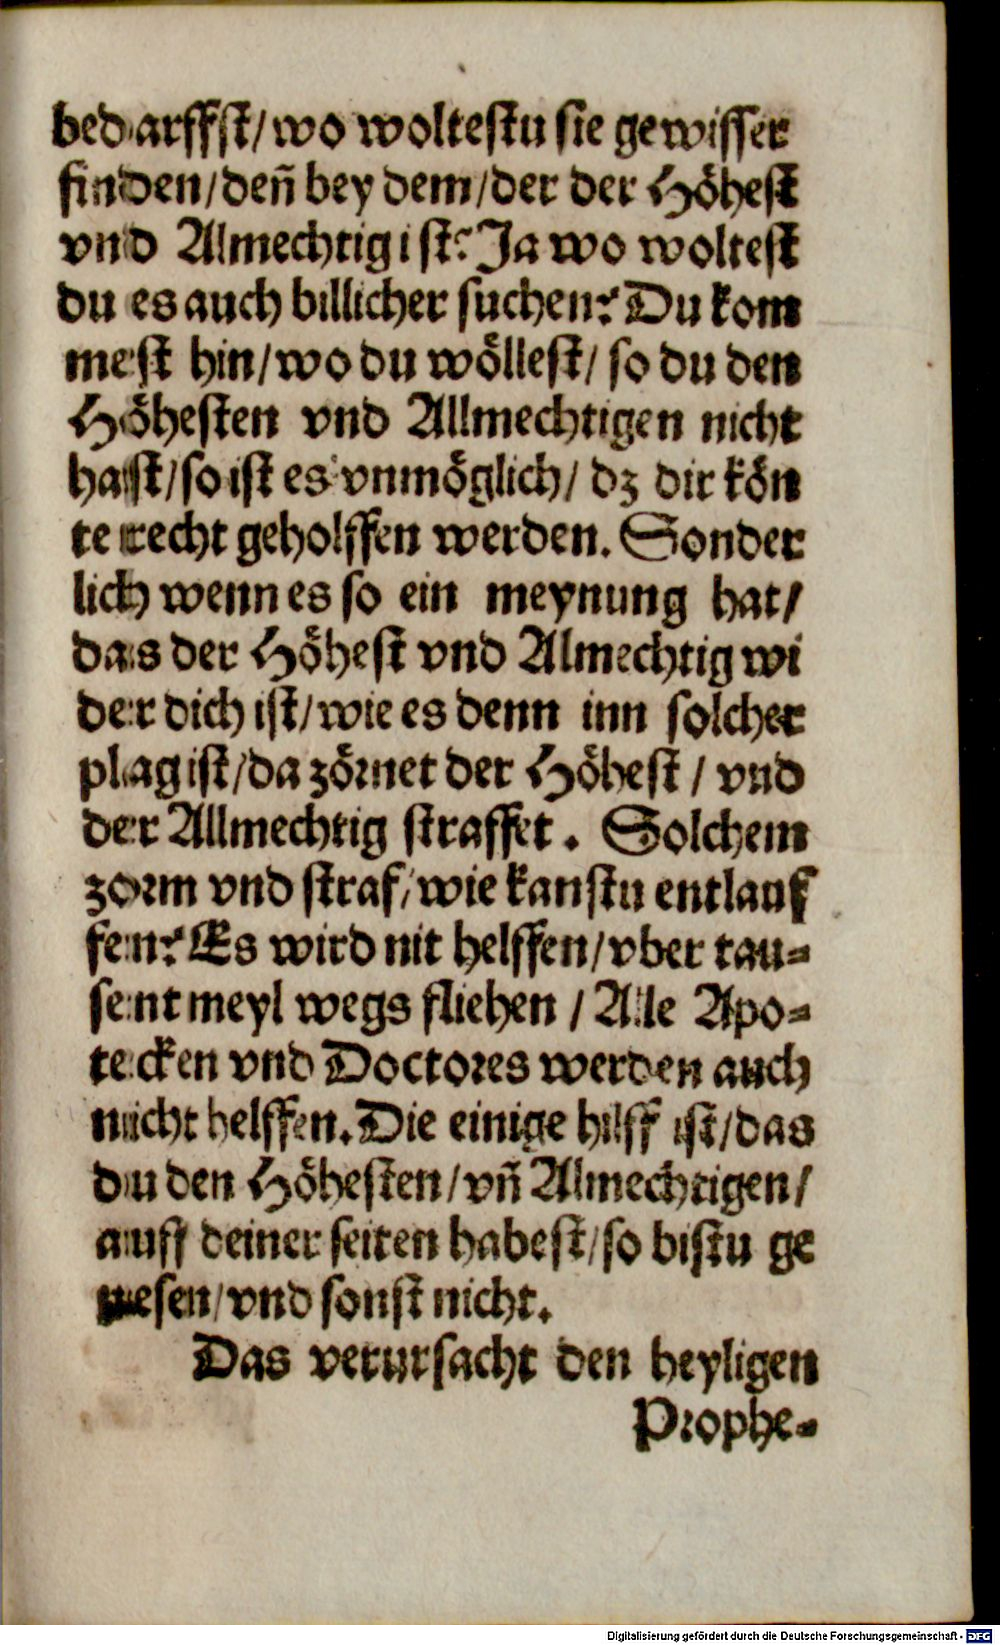 bedarffſt/wo wolteſtu ſie gewiſſer
finden/deñ bey dem/der der Höheſt
vnd Almechtig iſt? Ja wo wolteſt
du es auch billicher ſuchen? Du kom
meſt hin/wo du wölleſt/ ſo du den
Höheſten vnd Allmechtigen nicht
haſt/ſo iſt es vnmöglich/ dz dir kön
te recht geholffen werden. Sonder
lich wenn es ſo ein meynung hat/
das der Höheſt vnd Almechtig wi
der dich iſt/wie es denn inn ſolcher
plag iſt/da zörnet der Höheſt / vnd
der Allmechtig ſtraffet. Solchem
zorm vnd ſtraf/wie kanſtu entlauf
fen? Es wird nit helffen/vber tau-
ſent meyl wegs fliehen / Alle Apo-
tecken vnd Doctores werden auch
nicht helffen. Die einige hilff iſt/das
du den Höheſten/vñ Almechtigen/
auff deiner ſeiten habeſt/ſo biſtu ge
neſen/vnd ſonſt nicht.
Das verurſacht den heyligen
Prophe-
Digitalisierung gefördert durch die Deutsche Forschungsgemeinschaft - DFG